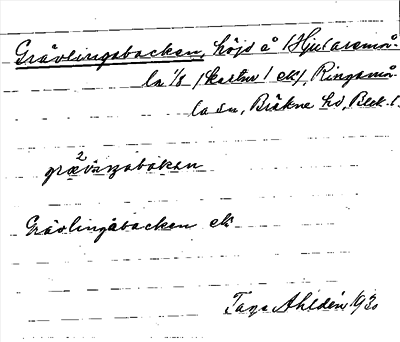 Grävlingabacken, höjd å Hjulasmå-
la 1/8 (kartur! ek), Ringamå-
la sn, Bräkne hd, Blek. l.
grä²vingabakan
Grävlingabacken ek
Tage Ahldén 1930